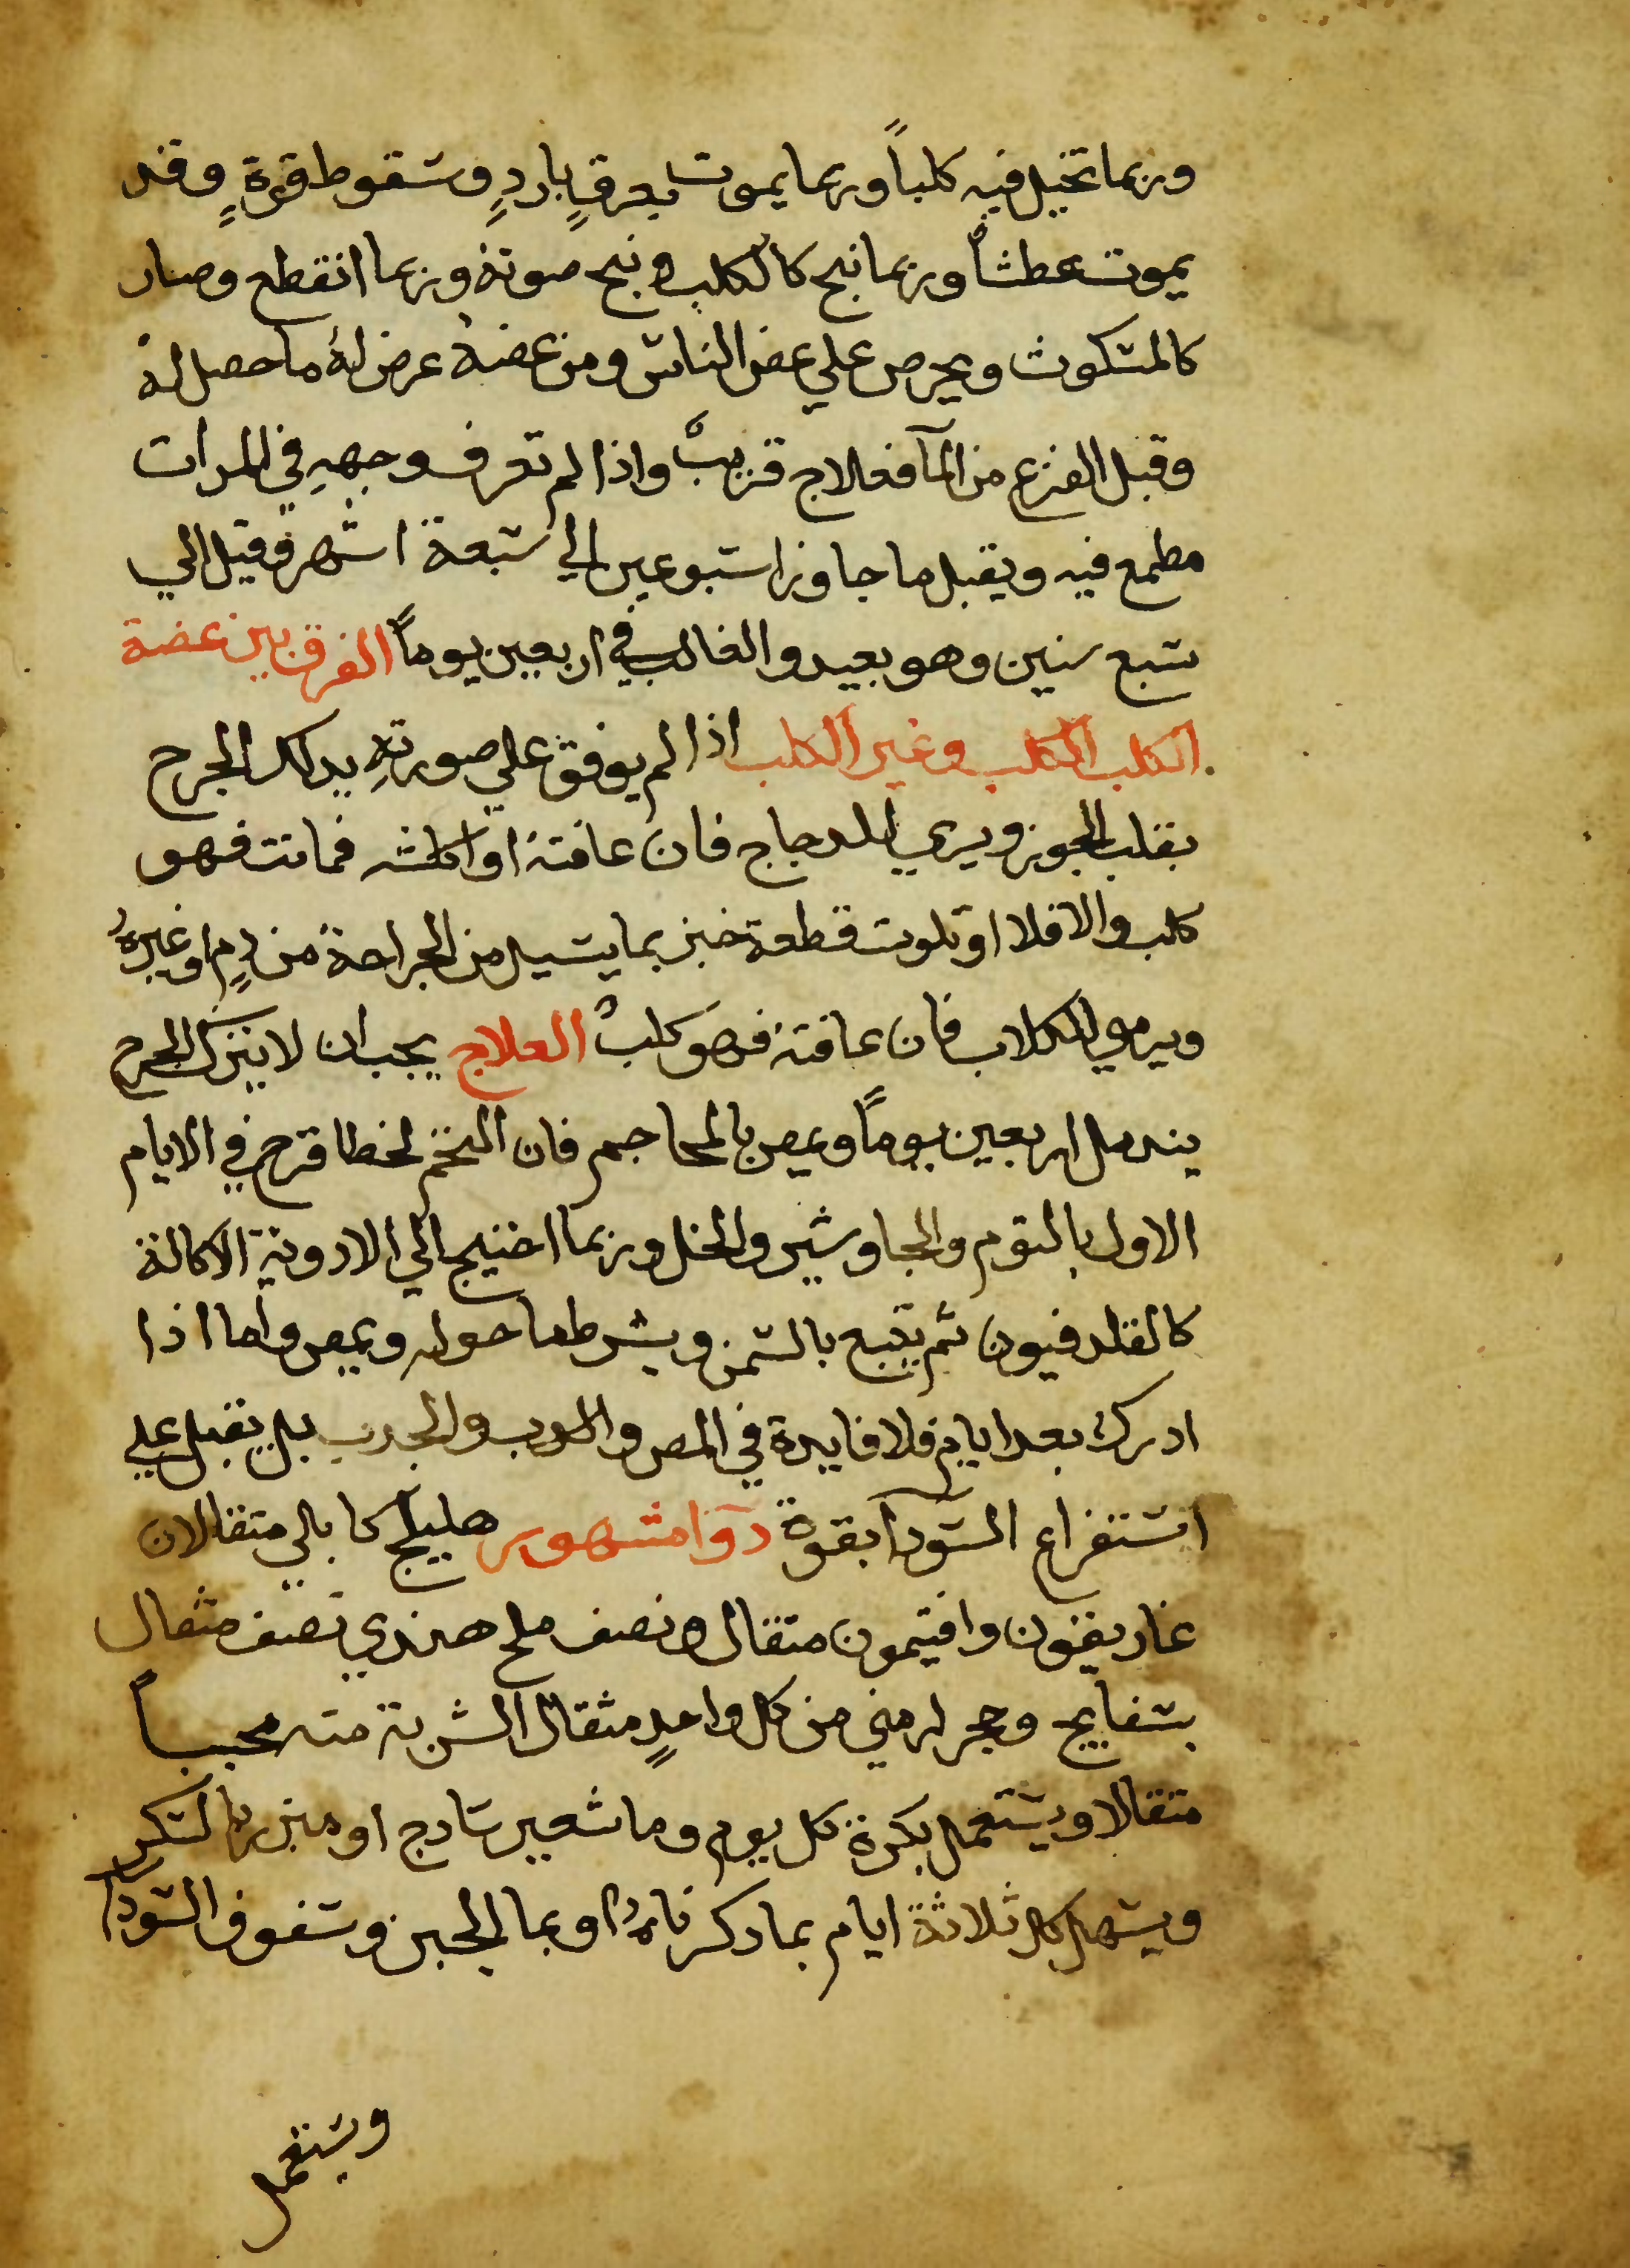 وربما تخيل فيه كلباً وربما يموت بعرقٍ باردٍ وسقوط قوةٍ وقد
يموت عطشاً وربما نبح كالكلب ونبح صوته وربما انقطع وصار
كالمسكوت ويحرص علي عض الناس ومن عضه عرض له ما حصل له
وقبل الفزع من المآ فعلاج قريبٌ واذا لم تعرف وجهه في المرات
مطمع فيه ويقبل ما جاوز اسبوعين الي سبعة اشهر وقيل الي
سبع سنين وهو بعيد والغالب في اربعين يوماً الفرق بين عضة
الكلب الكلب وغير الكلب اذا لم يوفق علي صورتهِ يدلك الجرح
بقلب الجوز ويري للدجاج فان عافته او اكلته فماتت فهو
كلب والا فلا او تلوت قطعة خبز بما يسيل من الجراحة من دمٍ او غيره
ويرمي للكلاب فان عافته فهو كلبٌ العلاج يجب ان لا يترك الجرح
يندمل اربعين يوماً ويمص بالمحاجم فان التخم لخطا قرح في الايام
الاول بالتوم والجاوشير والخل وربما احتيج الي الادوية الاكالة
كالقلدفيون ثم يتبع بالسمن ويشرط ما حوله ويمص واما اذا
ادرك بعد ايام فلا فايدة في المص والجدب بل يقبل علي
استفراغ السودآ بقوة دوآ مشهور هليلج كابالي متقالان
غاريقون وافتيمون متقال ونصف ملح هندي نصف مثقال
بسفايج وحجر ارمني من كل واحدٍ مثقال الشربة منه محبباً
متقالا ويستعمل بكرة كل يوم وما شعير سادج او مبزر بالسكر
ويسهل كل ثلاثة ايام بما دكرناهُ او بما الجبن وسفوف السودآ
ويستعمل